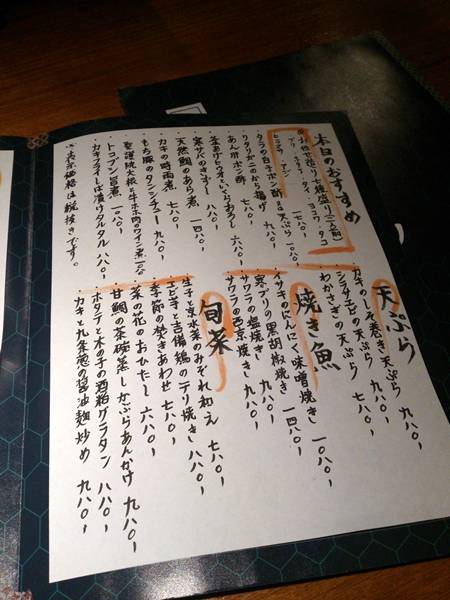 本日のおすすめ
ブリ・カキ・タイ・ヨコワ・タコ
タラの白子ポン酢 or天ぷら 一〇八〇、
ワタリガニのから揚げ 九八〇、
あん肝ポン酢 七八〇、
釜あげシラスといくらおろし 六八〇、
寒サバのきずし 八八〇、
天然鯛のあら煮 一四八〇、
カキの時雨煮 七八〇、
もち豚のタンシチュー 九八〇、
聖護院大根と牛ホホ肉のワイン煮
トコブシ旨煮 一〇八〇、
カキフライしば漬けタルタル 八八〇、
※表示価格は税抜きです。
天ぷら
カキのしそ巻き天ぷら 九八〇、
シラサエビの天ぷら 九八〇、
わかさぎの天ぷら 七八〇、
焼き魚
イサギのにんにく味噌焼き 一〇八〇、
寒ブリの黒胡椒焼き 一四八〇、
サワラの塩焼き 九八〇、
サワラの西京焼き 九八〇、
旬菜
生子と京水菜のみぞれ和え 七八〇、
エビ芋と吉備鶏のテリ焼き 八八〇、
季節の焚きあわせ 七八〇、
菜の花のおひたし 六八〇、
甘鯛の茶碗蒸しかぶらあんかけ 九八〇、
ホタテと木の子の酒粕グラタン 八八〇、
カキと九条葱の醤油麹炒め 九八〇、